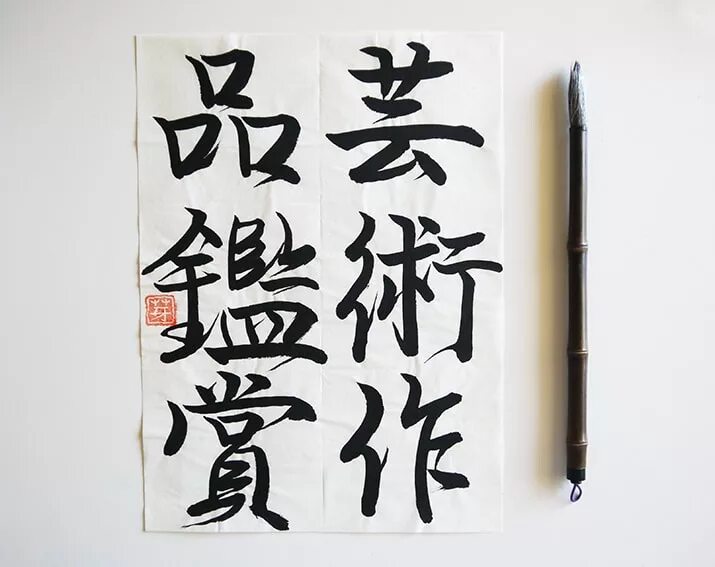 芸術作
品鑑賞
芽